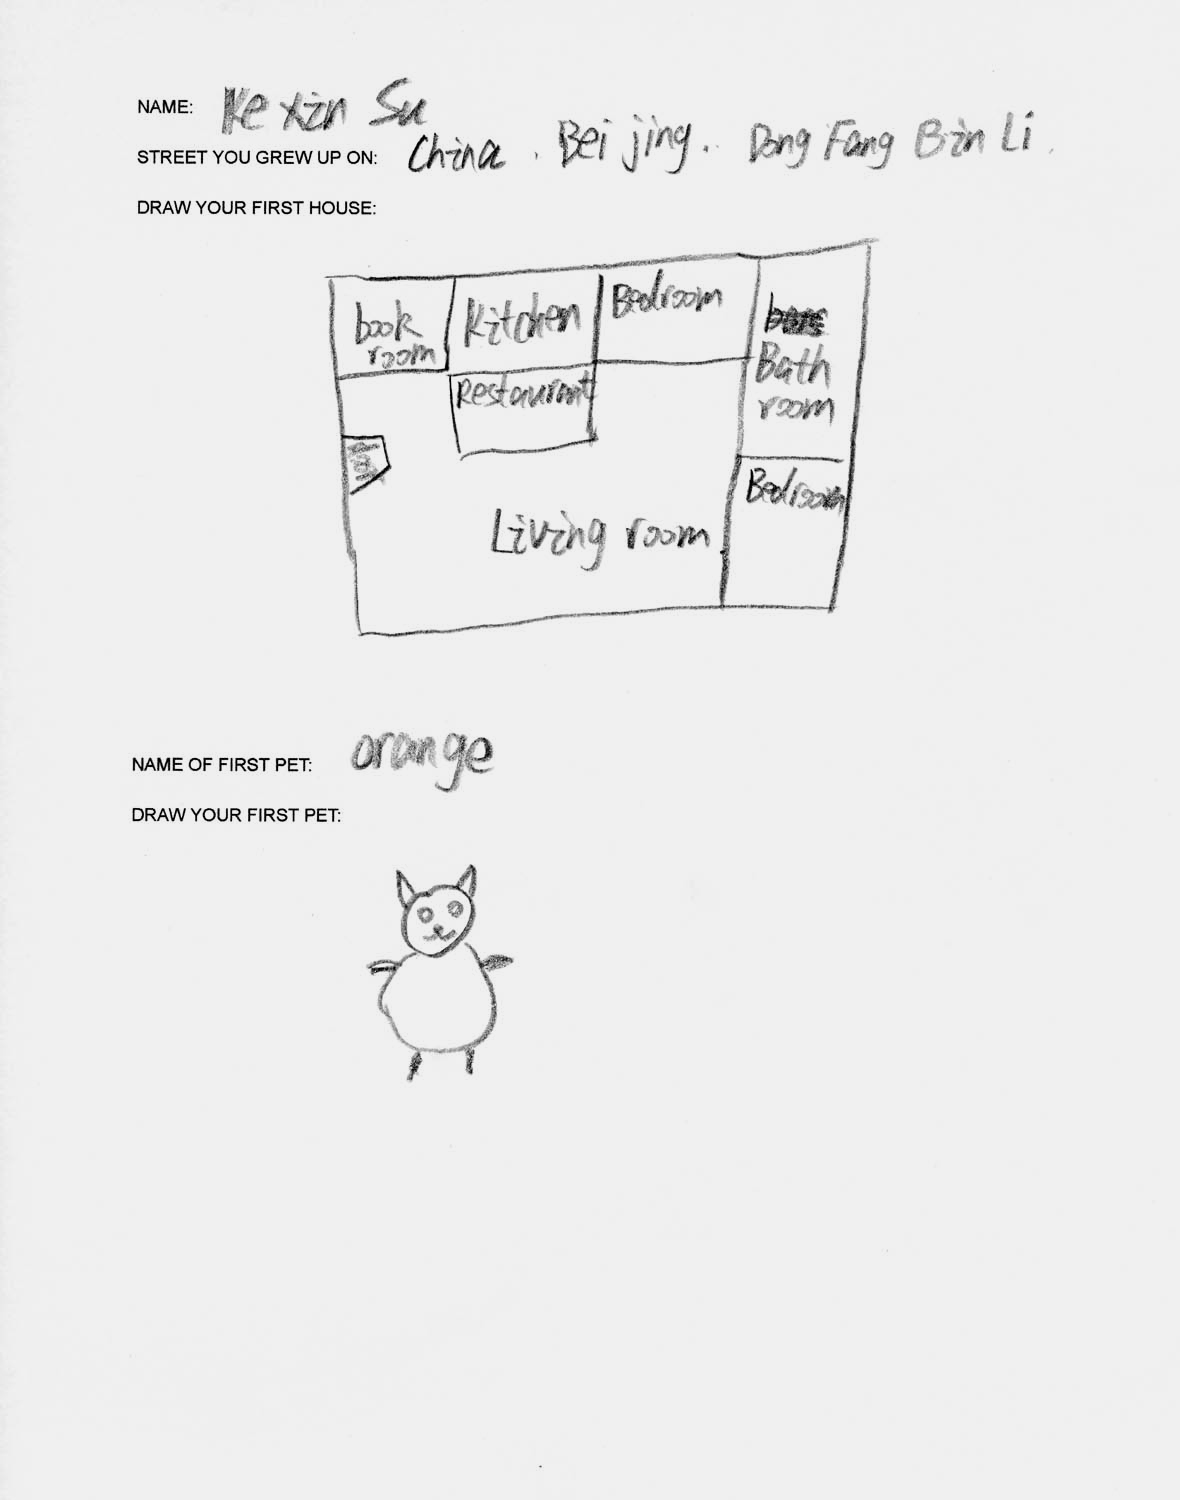 NAME: Ke Xin Su
STREET YOU GREW UP ON: China . Bei jing.. Dong Fang Bin Li .
DRAW YOUR FIRST HOUSE:
book room
Kitchen
Bedroom
Bath room
Restaurant
Bedroom
Living room
NAME OF FIRST PET: orange
DRAW YOUR FIRST PET: